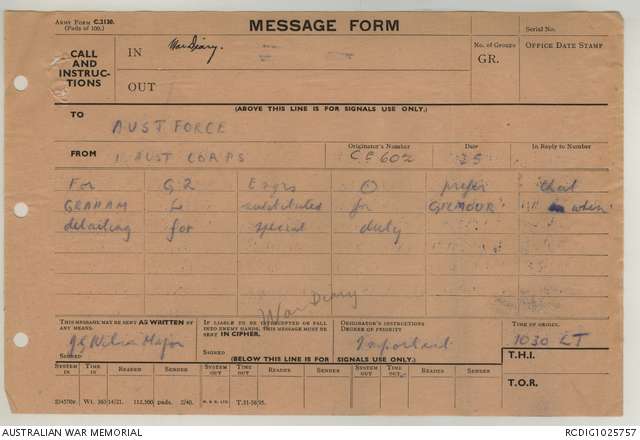 ARMY FORM C.2136.
(Pads of 100.)
MESSAGE FORM
Serial No.
CALL AND INSTRUC-TIONS
IN
War Diary.
No. of Groups
GR.
OFFICE DATE STAMP
OUT
(ABOVE THIS LINE IS FOR SIGNALS USE ONLY.)
TO
AUSTFORCE
FROM
1 AUST CORPS
Originator's Number
CE602
Date
25
In Reply to Number
For G2 Engrs prefer that
GRAHAM be substituted for GILMOUR when
detailing for special duty
War Diary
THIS MESSAGE MAY BE SENT AS WRITTEN BY ANY MEANS.
Major
SIGNED
IF LIABLE TO BE INTERCEPTED OR FALL INTO ENEMY HANDS, THIS MESSAGE MUST BE SENT IN CIPHER.
SIGNED
ORIGINATOR'S INSTRUCTIONS
DEGREE OF PRIORITY
Important
TIME OF ORIGIN.
1030 LT
(BELOW THIS LINE IS FOR SIGNALS USE ONLY.)
T.H.I.
T.O.R.
SYSTEM IN
TIME IN
READER
SENDER
SYSTEM OUT
TIME OUT
READER
SENDER
SYSTEM OUT
TIME OUT
READER
SENDER
112,500 pads. 2/40.
AUSTRALIAN WAR MEMORIAL
RCDIG1025757